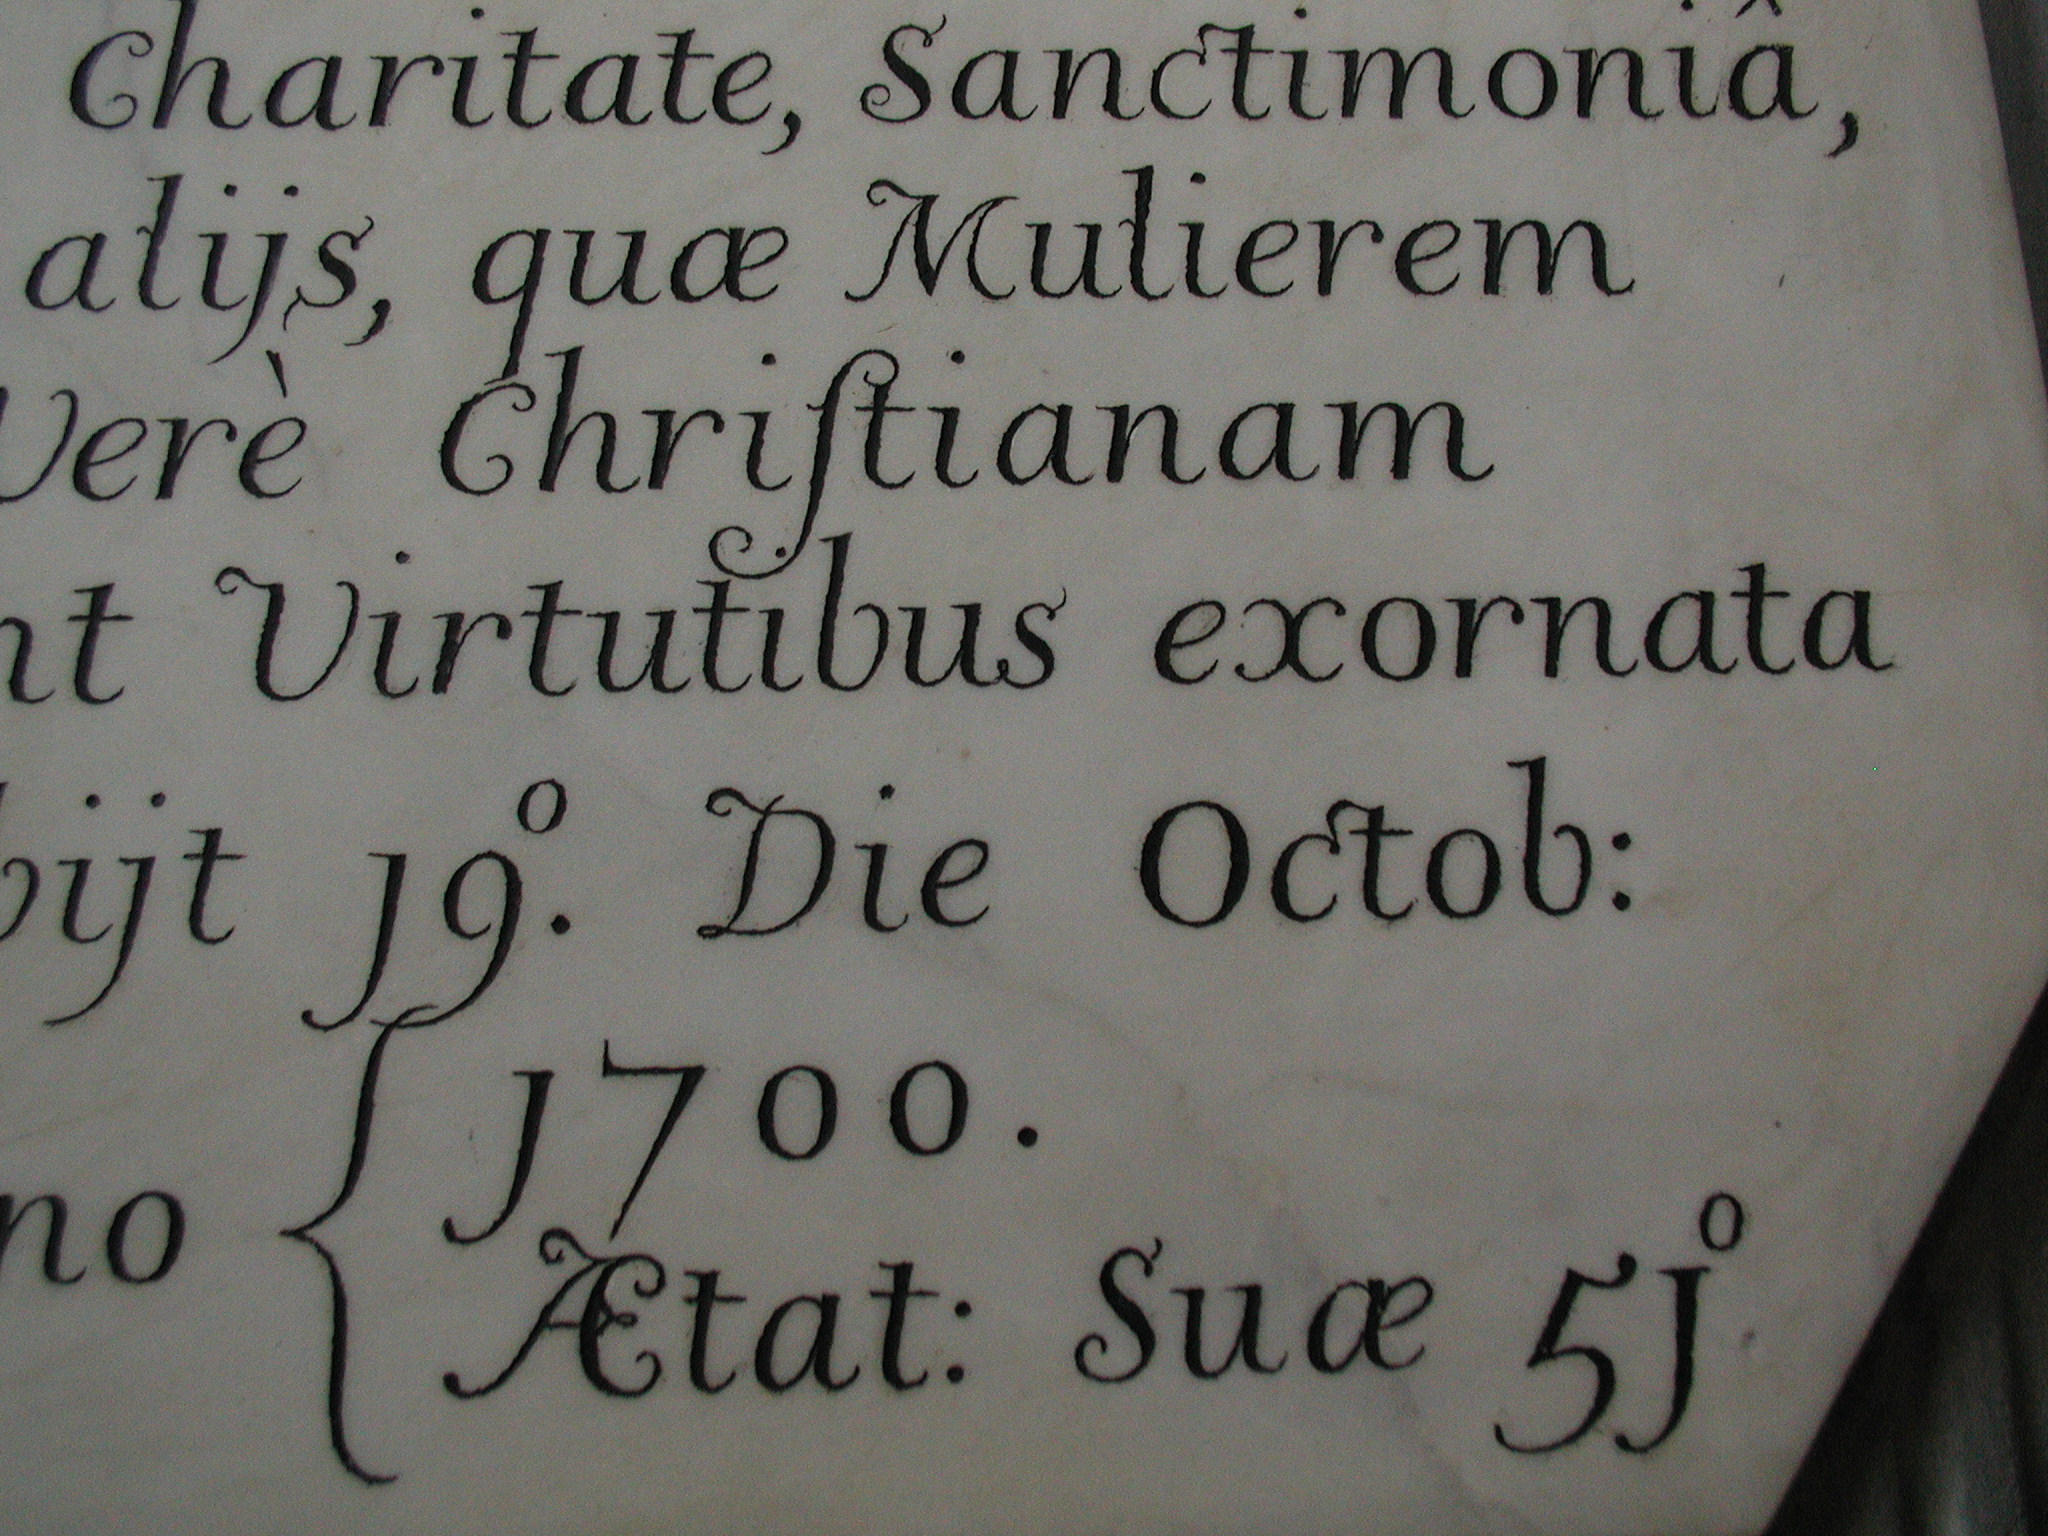 Charitate, Sanctimoniâ,
alijs, quæ Mulierem
Verè Chriſtianam
nt Virtutibus exornata
bijt 19º. Die Octob:
no { 1700.
Ætat: Suæ 51º